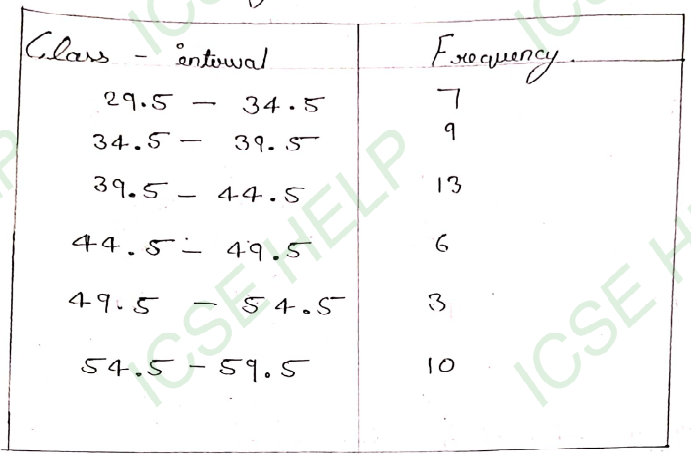 Class - interval Frequency.
29.5 - 34.5 7
34.5 - 39.5 9
39.5 - 44.5 13
44.5 - 49.5 6
49.5 - 54.5 3
54.5 - 59.5 10
ICSE HELP
ICSE H